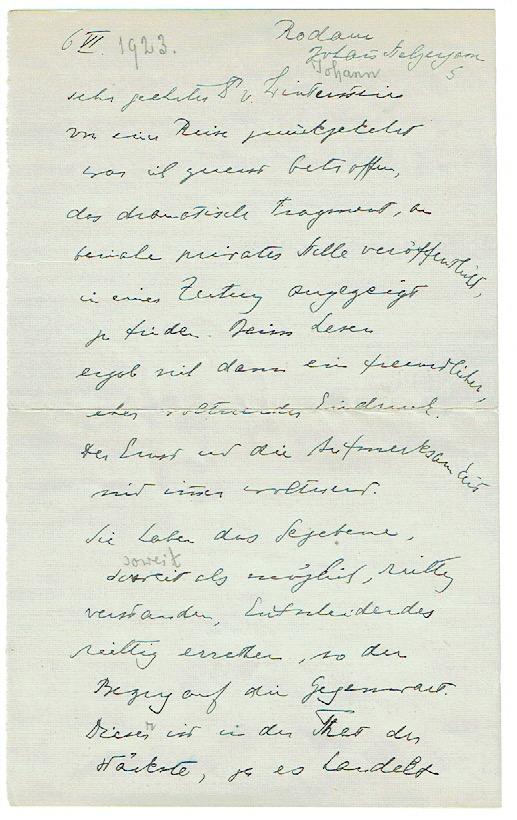 6 VI 1923.
Rodaun
Johann
5
sehr geehrter Dr v. Winterstein
von einer Reise zurückgekehrt
war ich zuerst betroffen,
das dramatische Fragment, an
beinahe privater Stelle veröffentlicht,
in einer Zeitung angezeigt
zu finden. Beim Lesen
ergab sich dann ein freundlicher,
eher woltuender Eindruck.
Der Ernst und die Aufmerksamkeit
sind immer woltuend.
Sie haben das Gegebene,
soweit
soweit als möglich, richtig
verstanden, Entscheidendes
richtig erraten, so den
Bezug auf die Gegenwart.
Dieser ist in der That der
stärkste, ja es handelt